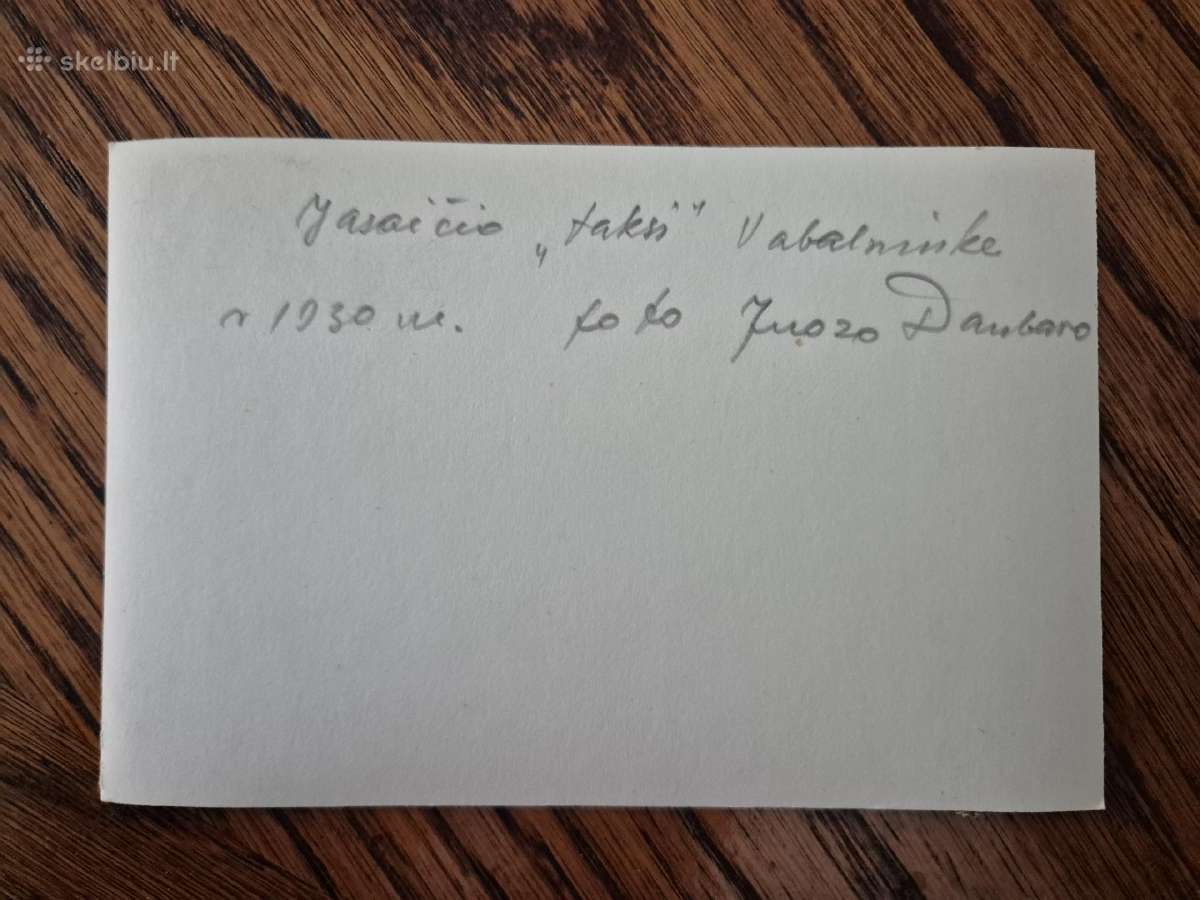 skelbiu.lt
Jasaičio „taksi" Vabalninke
~ 1930 m. foto Juozo Daubaro